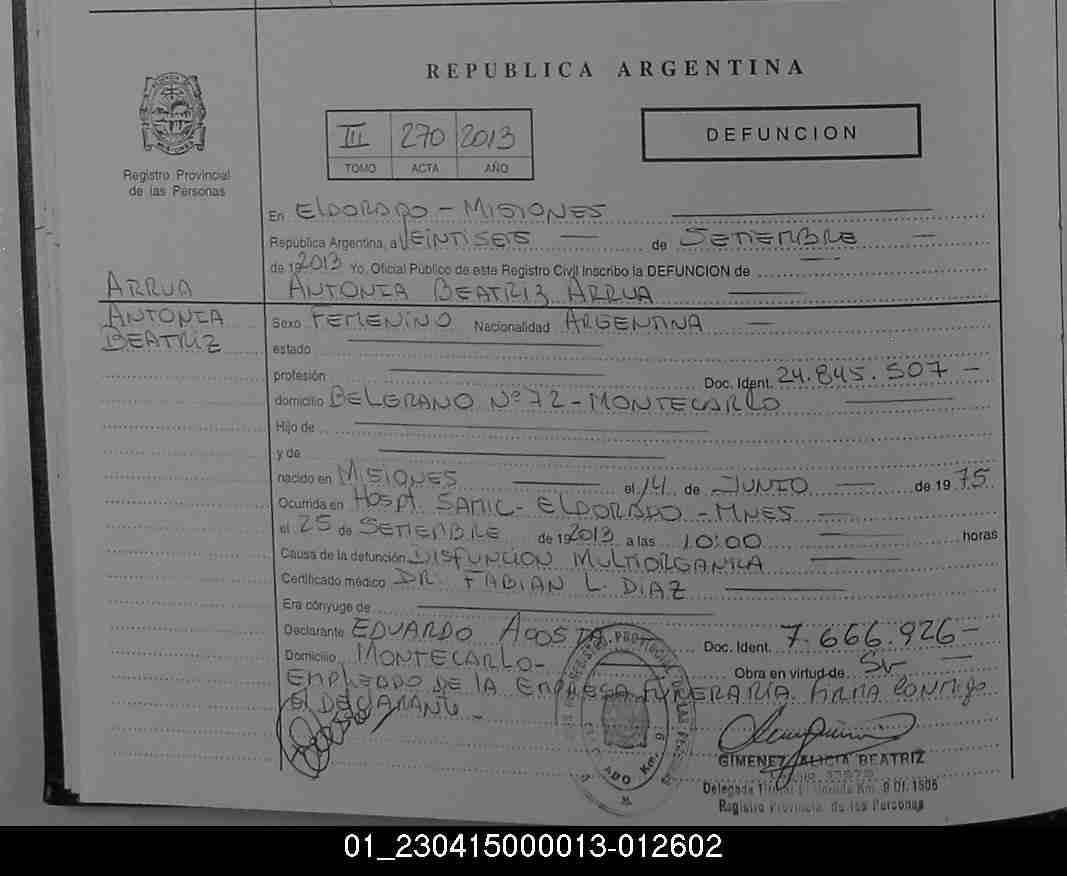 REPUBLICA ARGENTINA
III 270 2013
TOMO ACTA AÑO
DEFUNCION
Registro Provincial
de las Personas
En ELDORADO - MISIONES
República Argentina, a VEINTISEIS de SETIEMBRE
de 19 2013 Yo, Oficial Público de este Registro Civil inscribo la DEFUNCION de
ARRUA
ANTONIA BEATRIZ ARRUA
ANTONIA
BEATRIZ
Sexo FEMENINO Nacionalidad ARGENTINA
estado
profesión Doc. Ident. 24.845.507 -
domicilio BELGRANO Nº 72 - MONTECARLO
Hijo de
y de
nacido en MISIONES el 14 de JUNIO de 19 75
Ocurrida en HOSPT. SAMIC - ELDORADO - MNES
el 25 de SETIEMBRE de 19 2013 a las 10:00 horas
Causa de la defunción DISFUNCION MULTIORGANICA
Certificado médico DR. FABIAN L. DIAZ
Era cónyuge de
Declarante EDUARDO ACOSTA Doc. Ident. 7.666.926 -
Domicilio MONTECARLO - Obra en virtud de SV
EMPLEADO DE LA EMPRESA FUNERARIA. FIRMA CONMIGO
EL DECLARANTE -
GIMENEZ ALICIA BEATRIZ
Delegada Km. 9 Of. 1506
Registro Provincial de las Personas
01_230415000013-012602